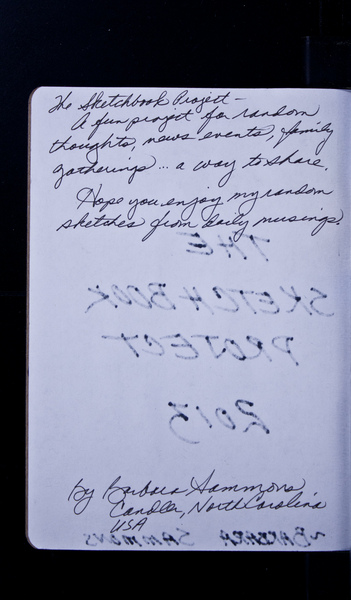 The Sketchbook Project –
A fun project for random
thoughts, news events, family
gatherings... a way to share.
Hope you enjoy my random
sketches from daily musings.
THE
SKETCHBOOK
PROJECT
2013
by Barbara Sammons
Candler, North Carolina
USA
~ BARBARA SAMMONS